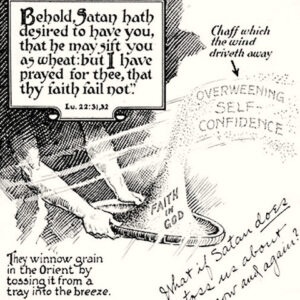 Behold, Satan hath
desired to have you,
that he may sift you
as wheat: but I have
prayed for thee, that
thy faith fail not."
Lu. 22:31,32
Chaff which
the wind
driveth away
OVERWEENING
SELF-
CONFIDENCE
FAITH
IN
GOD
They winnow grain
in the Orient by
tossing it from a
tray into the breeze.
What if Satan does
toss us about
now and again?